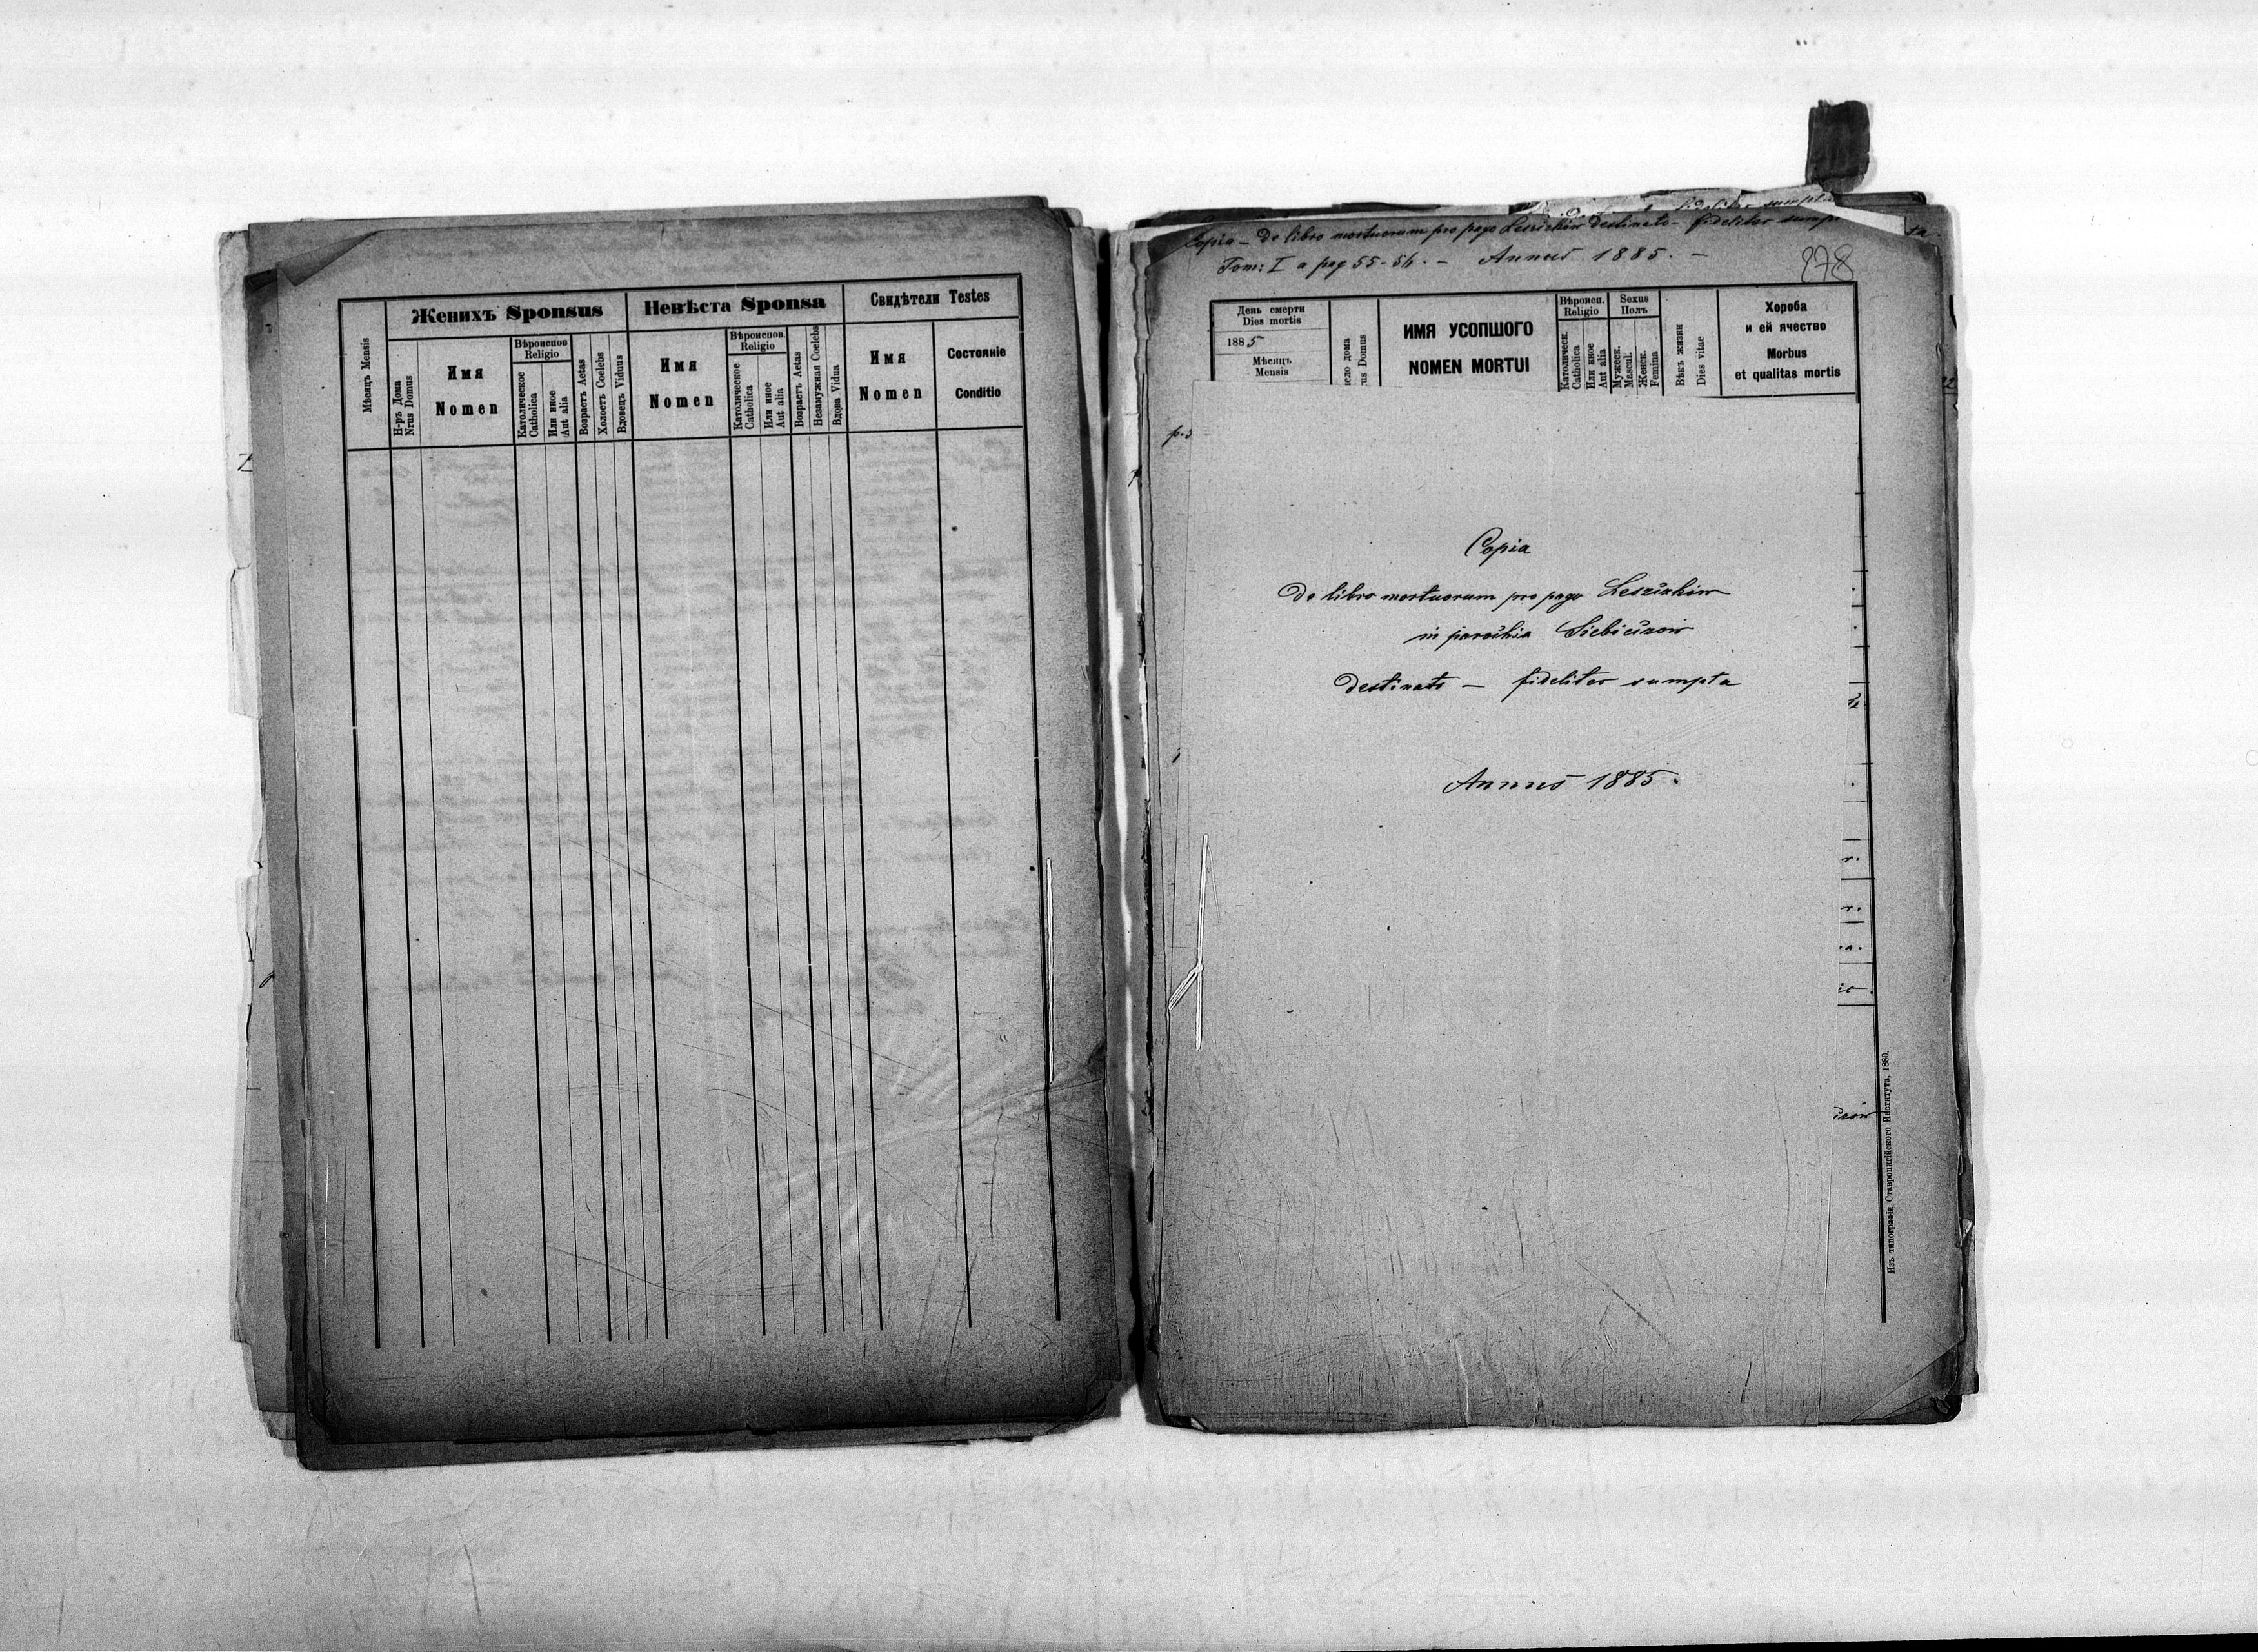 Женихъ Sponsus
Невѣста Sponsa
Свидѣтели Testes
Мѣсяцъ Mensis
Н-ръ Дома
Nrus Domus
Имя
Nomen
Вѣроиспов
Religio
Католическое
Catholica
Или иное
Aut alia
Возрастъ Aetas
Холостъ Coelebs
Вдовецъ Viduus
Имя
Nomen
Вѣроиспов.
Religio
Католическое
Catholica
Или иное
Aut alia
Возрастъ Aetas
Незамужная Coelebs
Вдова Vidua
Имя
Nomen
Состояніе
Conditio
Copia – De libro mortuorum pro pago destinato – fideliter
Tom: I a pag 55-56. – Annus 1885. –
278
День смерти
Dies mortis
1885
Мѣсяцъ
Mensis
ело дома
us Domus
ИМЯ УСОПШОГО
NOMEN MORTUI
Вѣроисп.
Religio
Католическ.
Catholica
Или иное
Aut alia
Sexus
Полъ
Мужеск.
Mascul.
Женск.
Femina
Вѣкъ жизни
Dies vitae
Хороба
и ей ячество
Morbus
et qualitas mortis
Copia
De libro mortuorum pro pago
in parochia
destinato – fideliter sumpta
Annus 1885.
Изъ типографіи Ставропигійского Института, 1880.